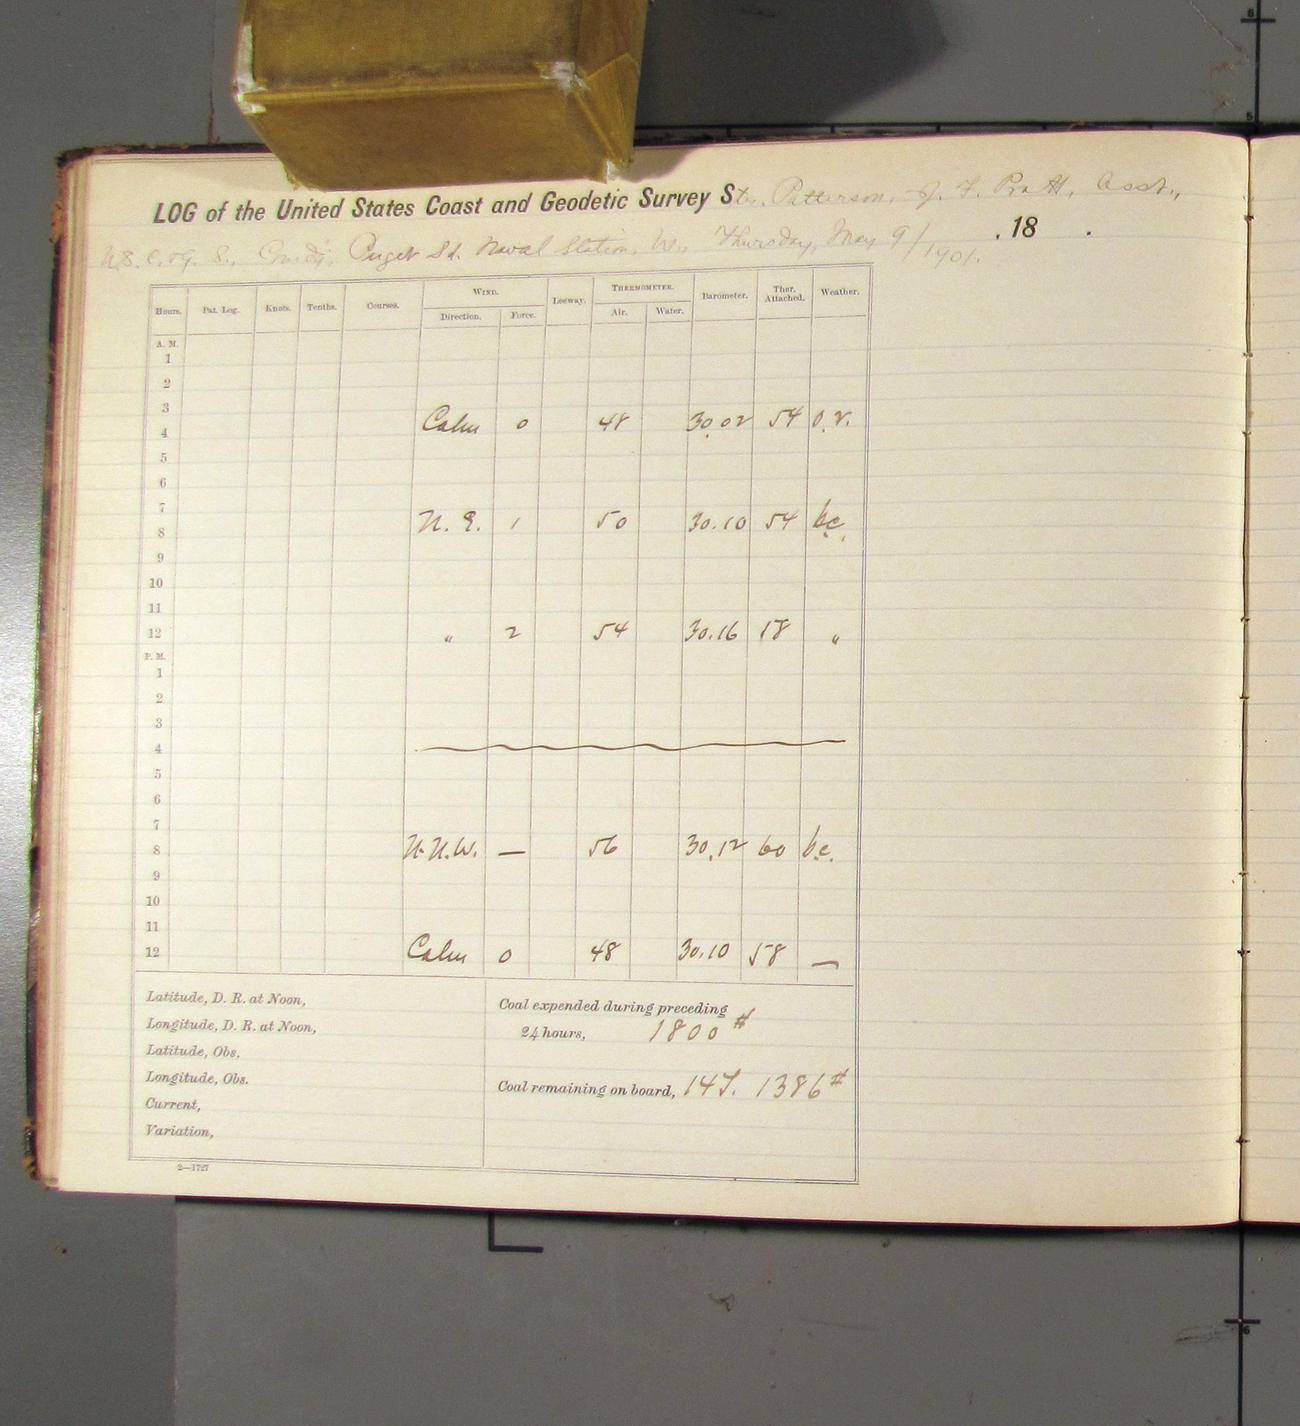 LOG of the United States Coast and Geodetic Survey Str. Patterson, J. F. Pratt, Asst.,
U.S.C. & G. S., Comd'g. Puget Sd. Naval Station, W., Thursday, May 9/1901. , 18 .
Hours. Pat. Log. Knots. Tenths. Courses. WIND. Leeway. THERMOMETER. Barometer. Ther. Attached. Weather.
Direction. Force. Air. Water.
A. M.
1
2
3
4 Calm 0 48 30.02 54 o.r.
5
6
7
8 N. E. 1 50 30.10 54 b.c.
9
10
11
12 " 2 54 30.16 58 "
P. M.
1
2
3
4
5
6
7
8 N.N.W. — 56 30.12 60 b.c.
9
10
11
12 Calm 0 48 30.10 58 —
Latitude, D. R. at Noon,
Longitude, D. R. at Noon,
Latitude, Obs.
Longitude, Obs.
Current,
Variation,
Coal expended during preceding
24 hours, 1800 #
Coal remaining on board, 14T. 1386 #
2—1727
5
5
6